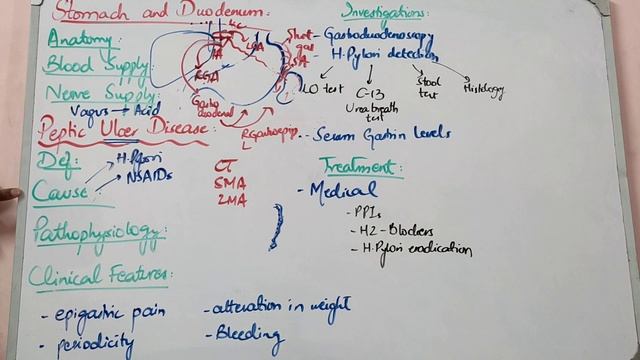 Stomach and Duodenum:
Anatomy:
Blood Supply:
Nerve Supply:
Vagus → Acid
Peptic Ulcer Disease:
Def:
Cause
H.Pylori
NSAIDs
Pathophysiology:
Clinical Features:
- epigastric pain
- periodicity
- alteration in weight
- Bleeding
Short
gas
SA
LGA
RGA
Gastro
duodenal
CT
SMA
IMA
Investigations:
- Gastroduodenoscopy
- H.Pylori detection
test
C-13
Urea breath
test
Stool
test
Histology
- Serum Gastrin Levels
Treatment:
- Medical
- PPIs
- H2-Blockers
- H.Pylori eradication